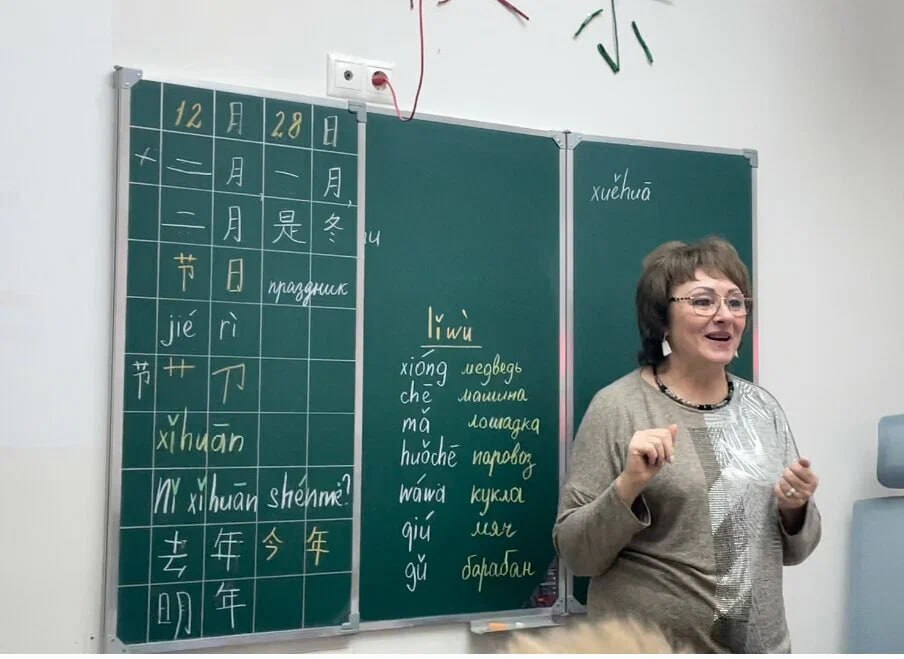 12月28日
十二月,一月,
二月是冬
节日 праздник
jié rì
节 艹 卩
xǐhuān
Nǐ xǐhuān shénme?
去年今年
明年
lǐwù
xióng медведь
chē машина
mǎ лошадка
huǒchē паровоз
wáwa кукла
qiú мяч
gǔ барабан
xuěhuā